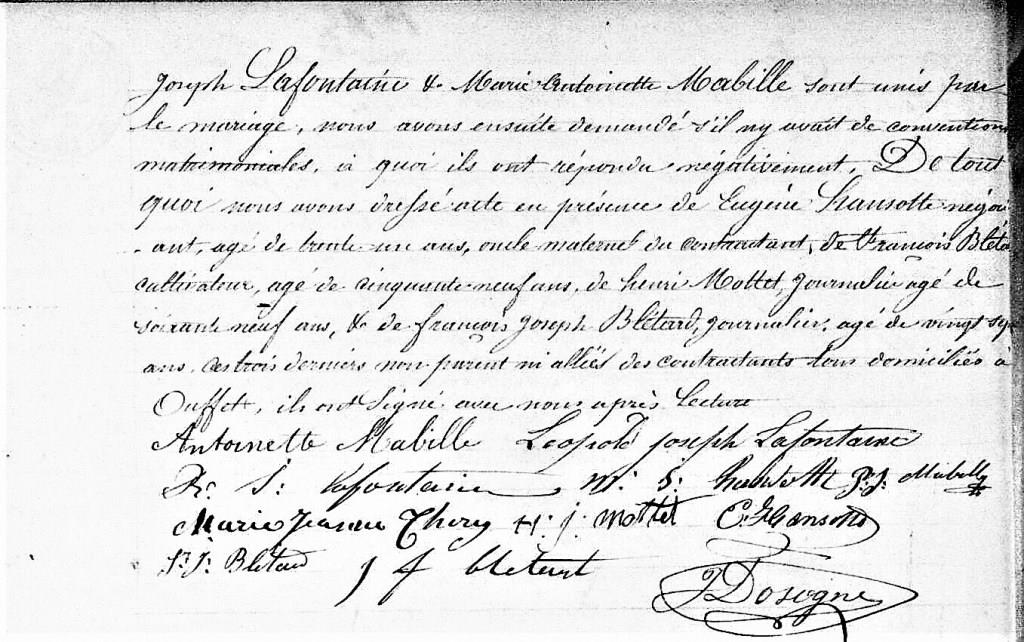 Joseph Lafontaine & Marie Antoinette Mabille sont unis par
le mariage, nous avons ensuite demandé s'il n'y avait de convention
matrimoniales, à quoi ils ont répondu négativement, De tout
quoi nous avons dressé acte en présence de Eugène Hansotte négoci
ant, agé de trente un ans, oncle maternel du contractant, de François Bléta
cultivateur, agé de cinquante neuf ans, de henri Mottet, journalier agé de
soixante neuf ans, & de françois Joseph Blétard, journalier, agé de vingt sept
ans, ces trois derniers non parent ni alliés des contractants tous domiciliés à
Ouffet, ils ont signé avec nous après lecture
Antoinette Mabille Leopold joseph Lafontaine
J: lafontaine M: j: hansotte J. J. Mabille
Marie Jeanne Thiry H: j: mottet E. Hansotte
Fr: J: Blétard J f bletard
J Dosogne